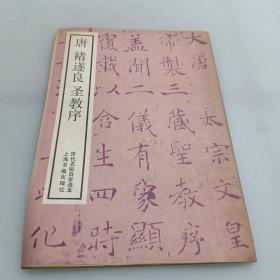 唐 褚遂良 圣教序
历代名帖自学选本
上海书画出版社
大唐太宗文皇
帝製三藏聖教序
盖聞二儀有象顯
覆載以含生四時
化